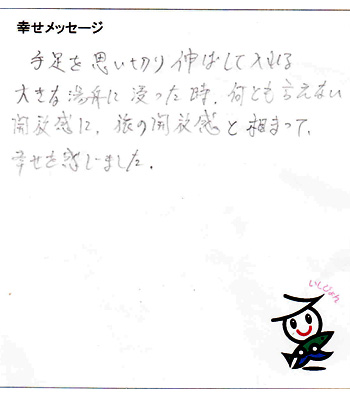 幸せメッセージ
手足を思い切り伸ばして入れる
大きな湯舟に浸った時、何とも言えない
開放感に、旅の開放感と相まって、
幸せを感じました.
いしぴょん